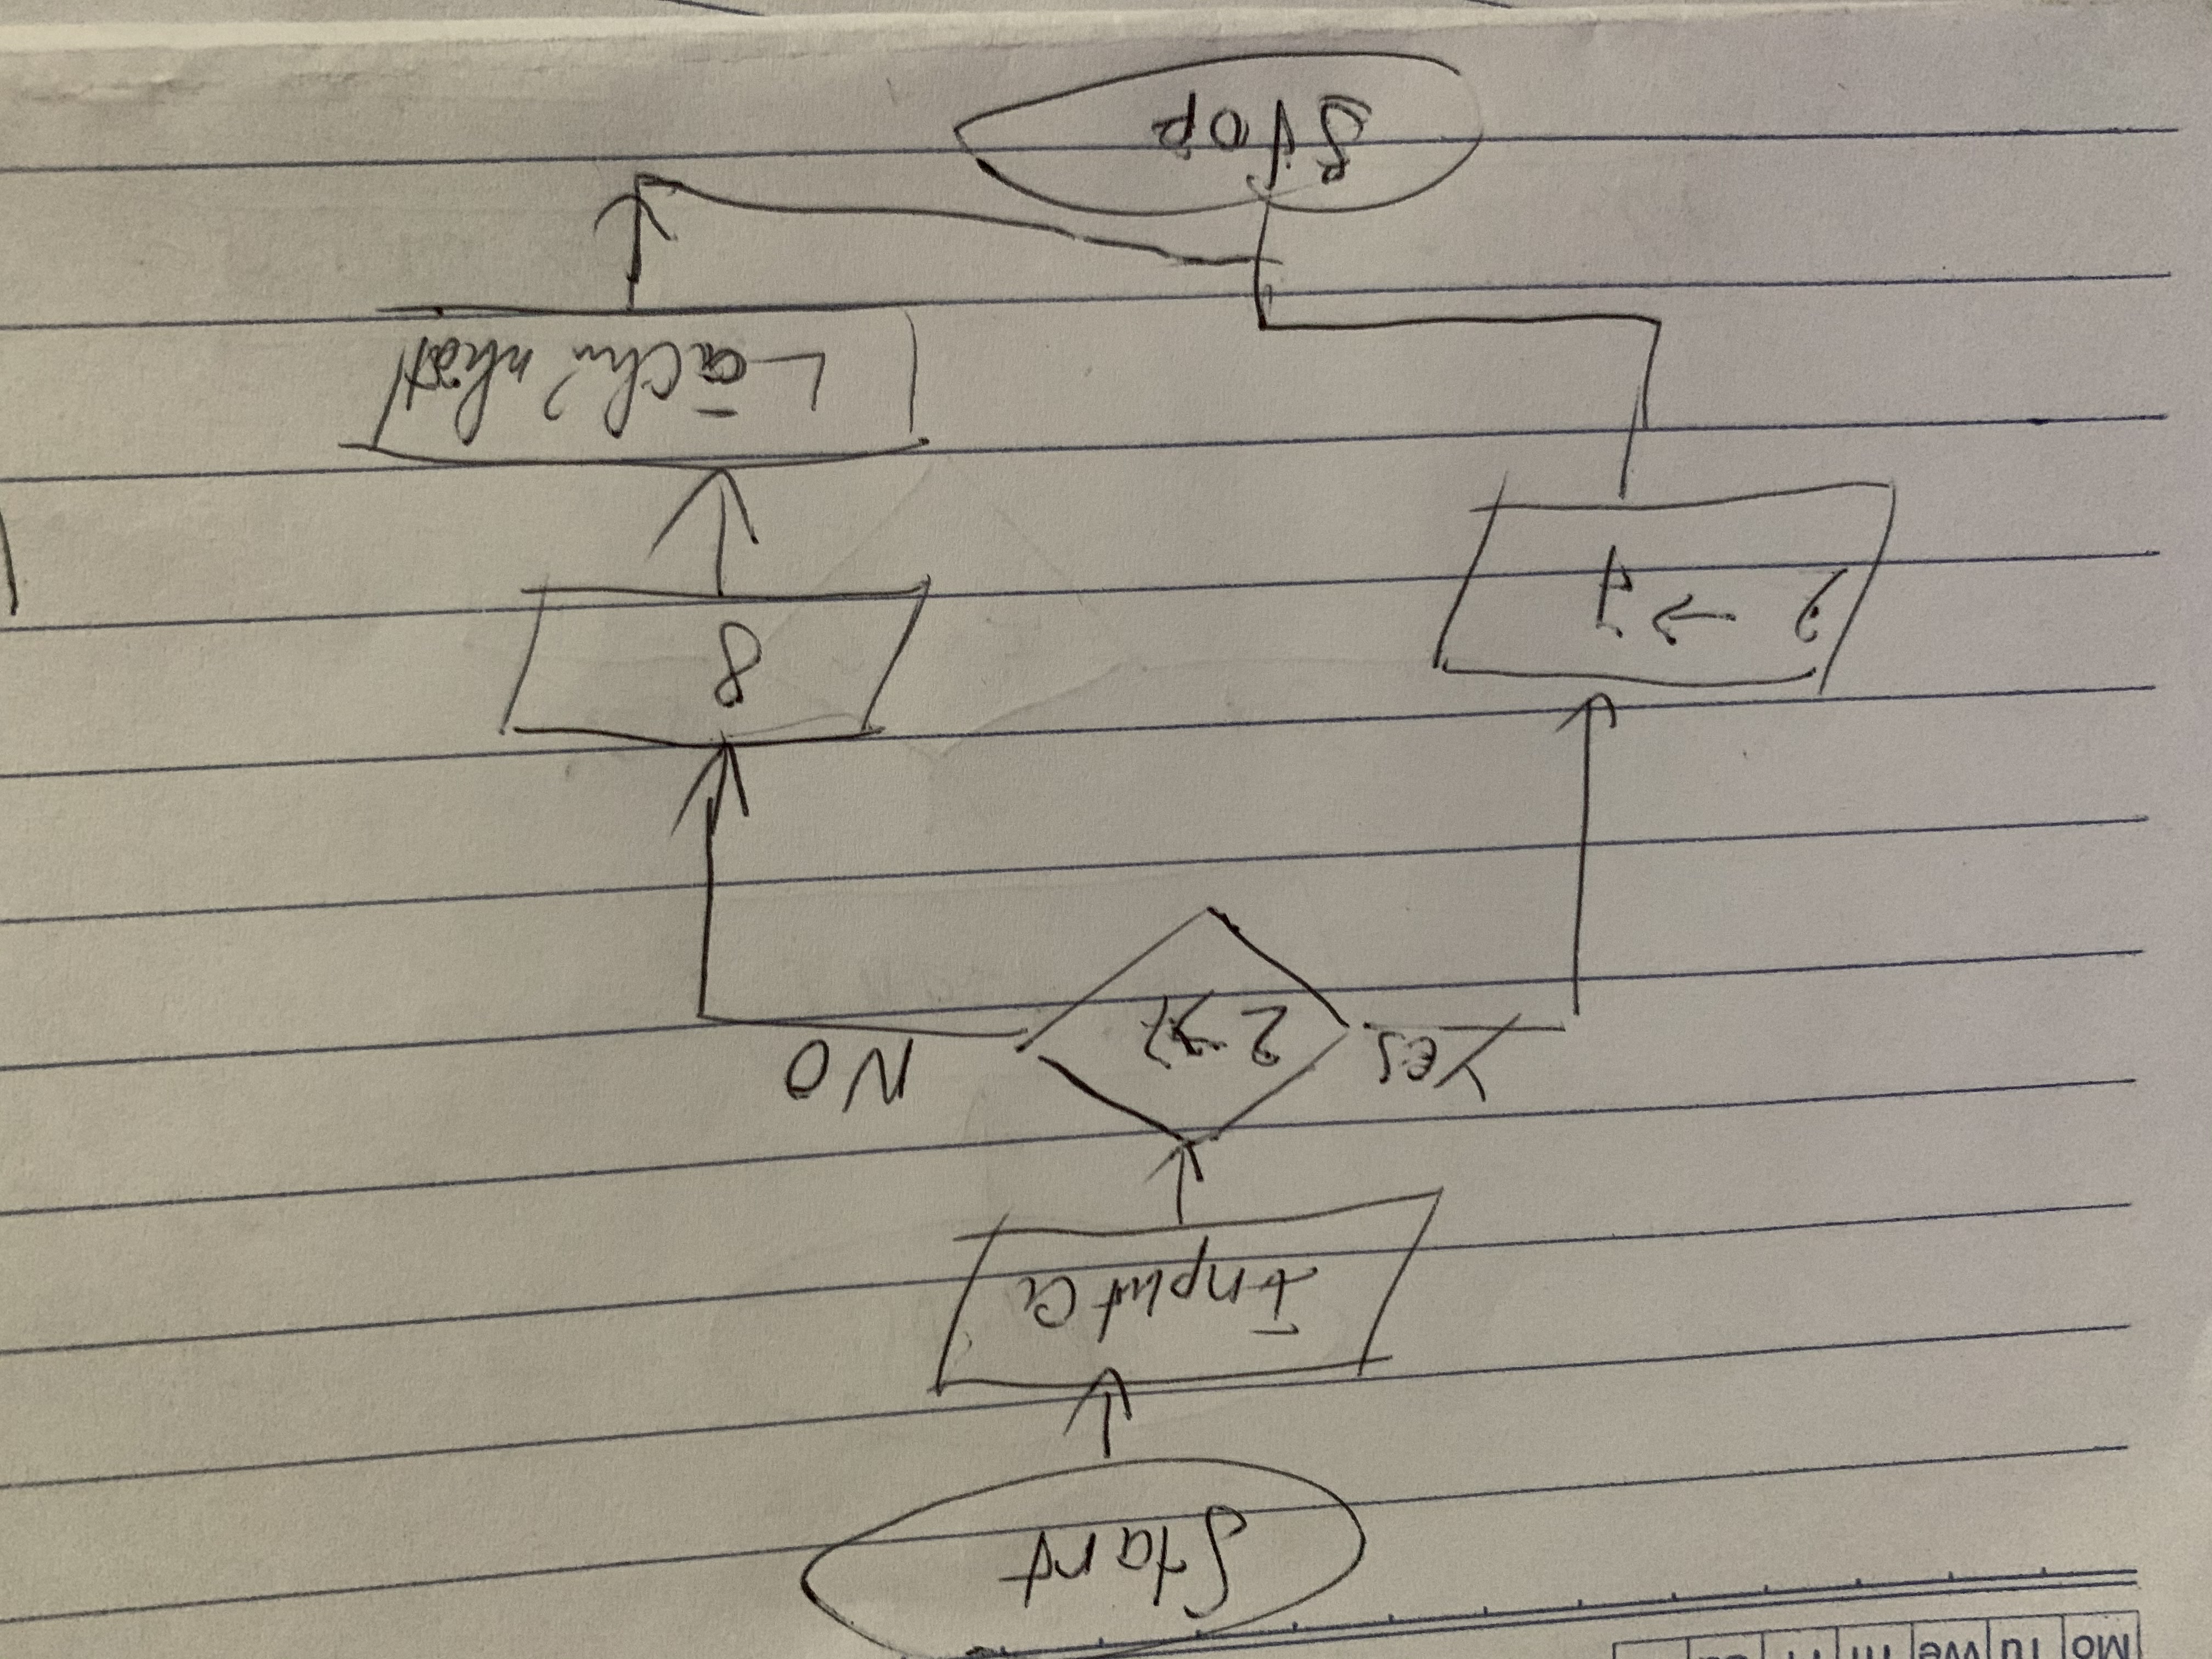 Mo Tu We Th Fr Sa
Start
Input a
2→7
Yes
NO
2 → 7
8
Là chủ nhật
Stop